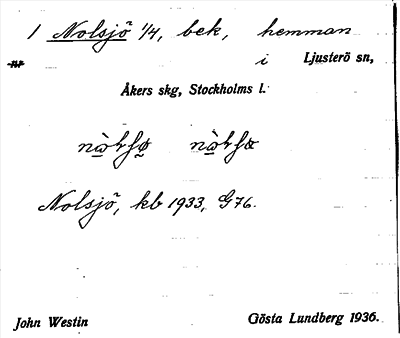 1 Nolsjö 1/4, bek, hemman
i Ljusterö sn,
Åkers skg, Stockholms l.
Nolsjö, kb 1933, G76.
John Westin Gösta Lundberg 1936.